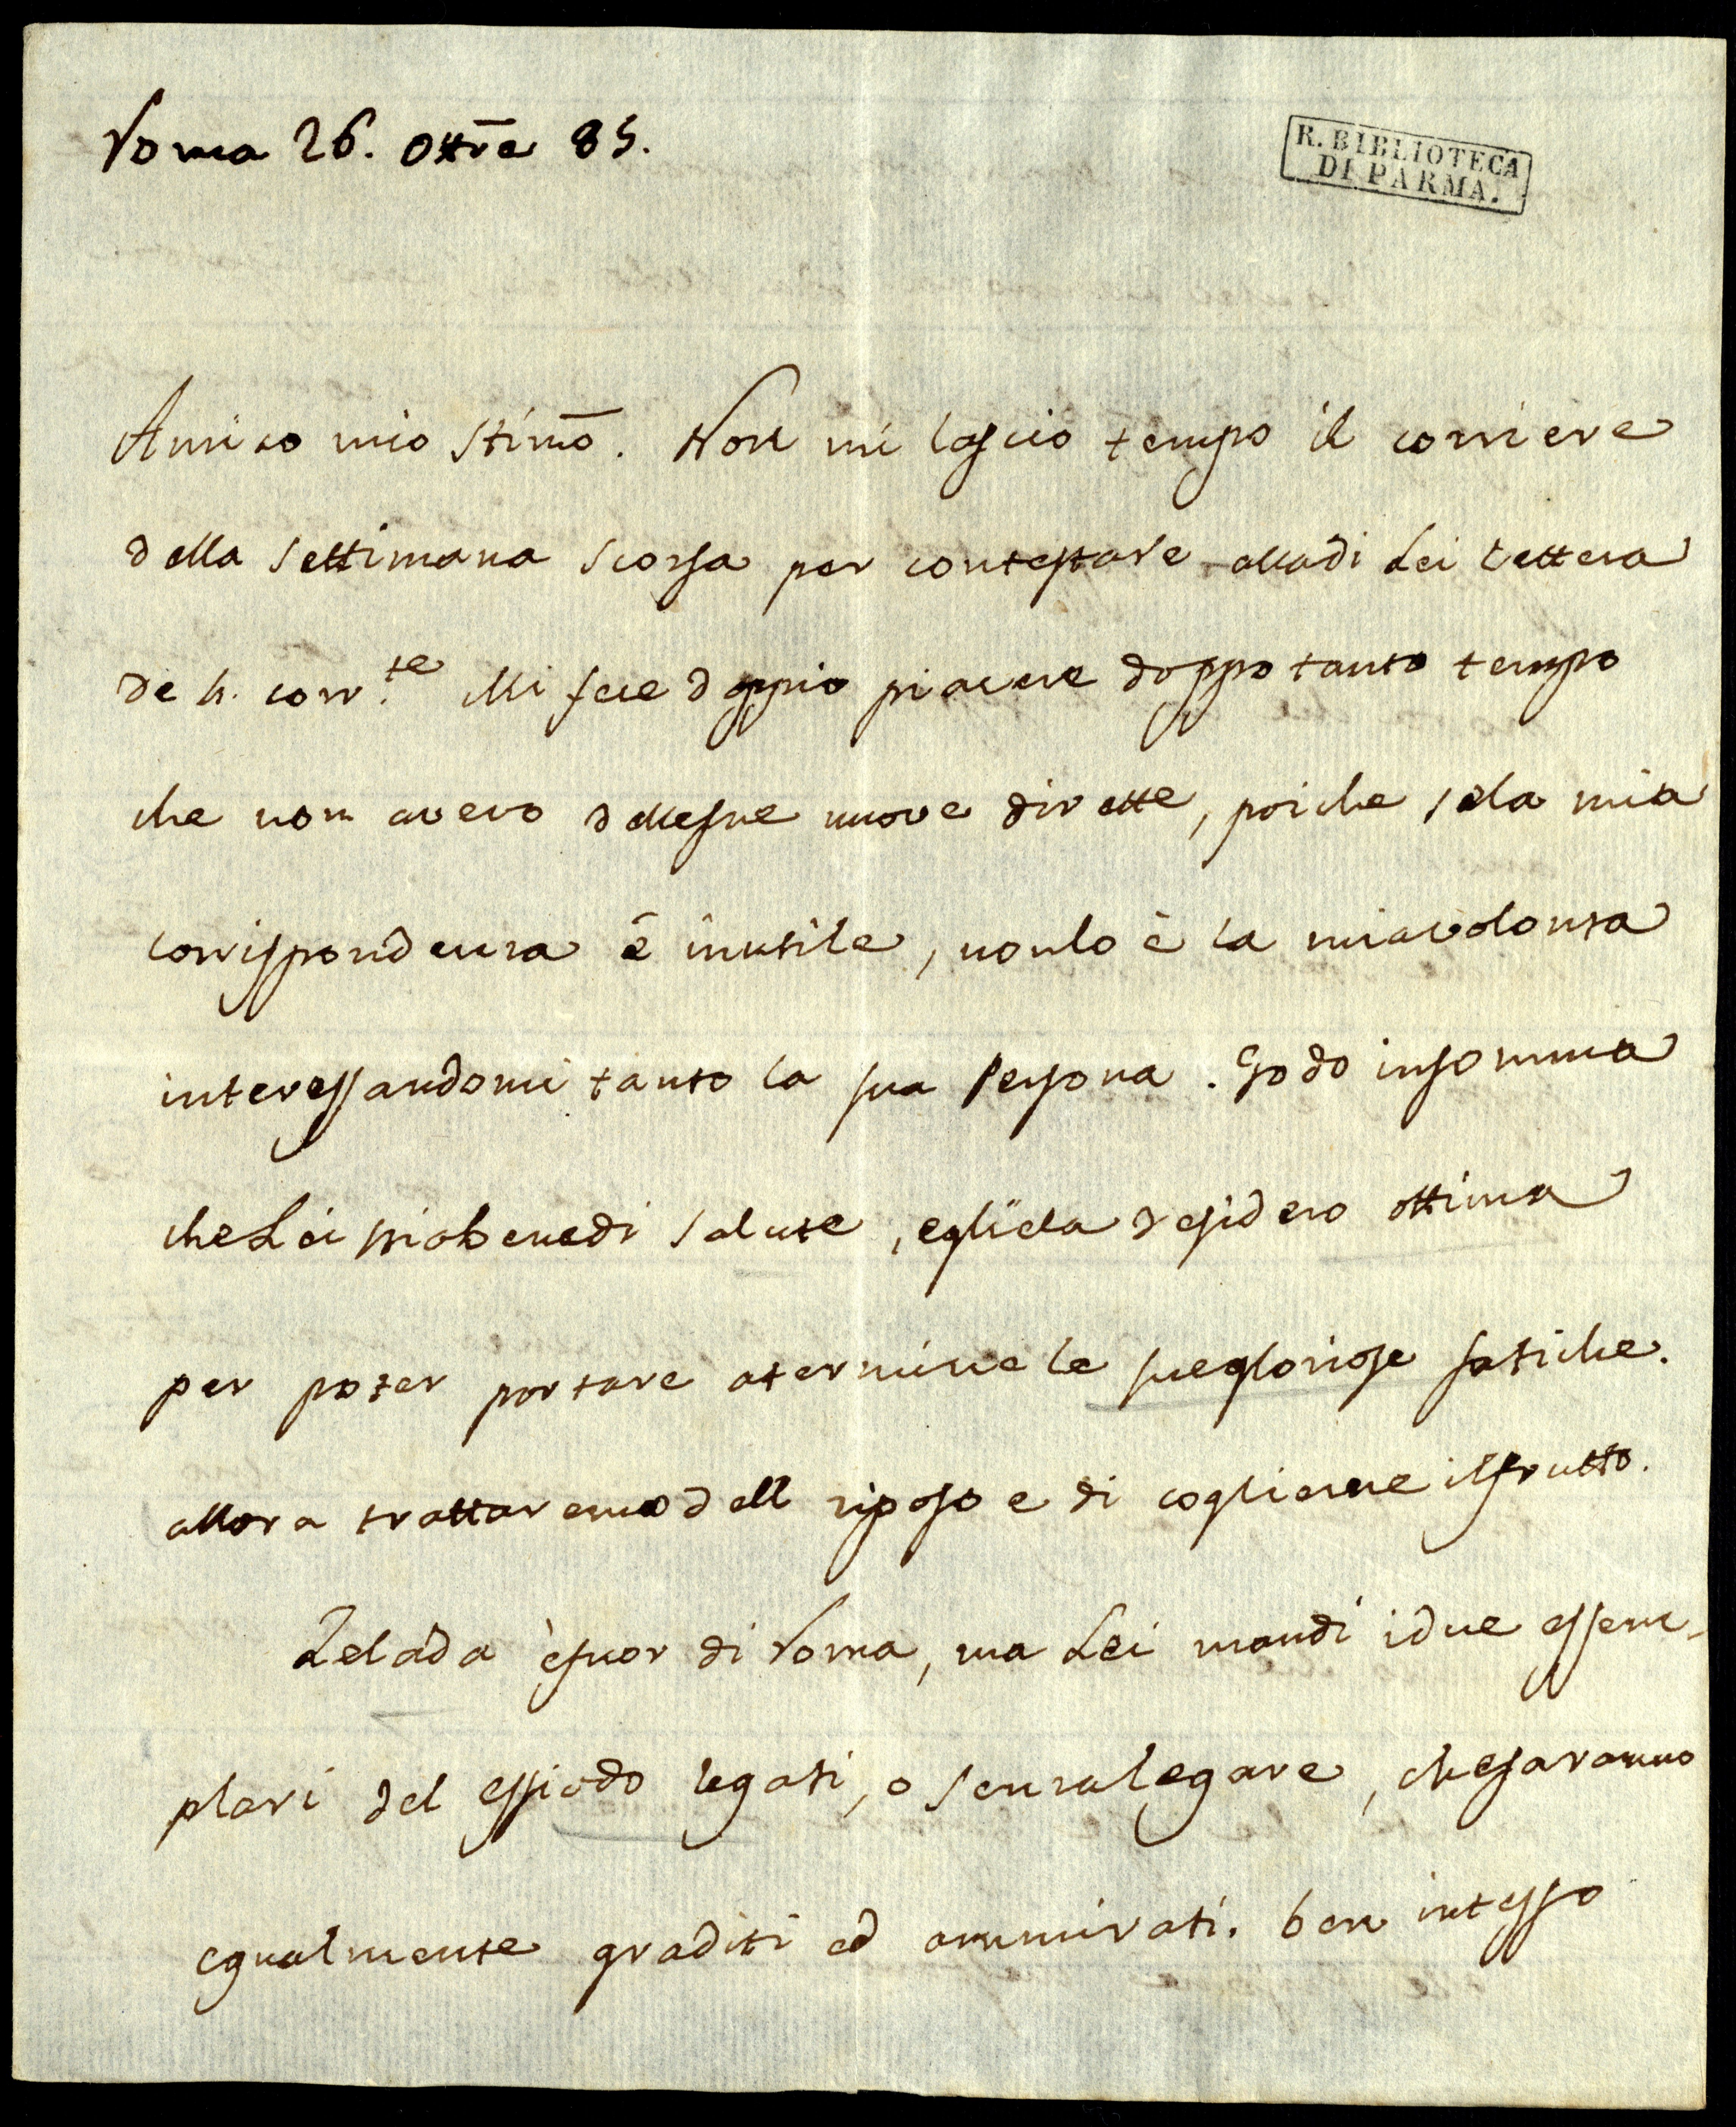 Roma 26. Ottre 85.
R. BIBLIOTECA
DI PARMA.
Amico mio stimo. Non mi lascio tempo il corriere
della settimana scorsa per contestare alla di Lei lettera
de 4. corr.te Mi fece doppio piacere doppo tanto tempo
che non avevo delle sue nuove dirette, poiche se la mia
corrispondenza è inutile, non lo è la mia volonta
interessandomi tanto la sua Persona. Godo insomma
che Lei stia bene di salute, egli ela desidero ottima
per poter portare a termine le sue gloriose fatiche.
allora trattaremo dell riposo e di coglierne il frutto.
Zelada è fuor di Roma, ma Lei mandi i due essem-
plari del Essiodo legati, o senza legare, che saranno
egualmente graditi ed ammirati. ben intesso